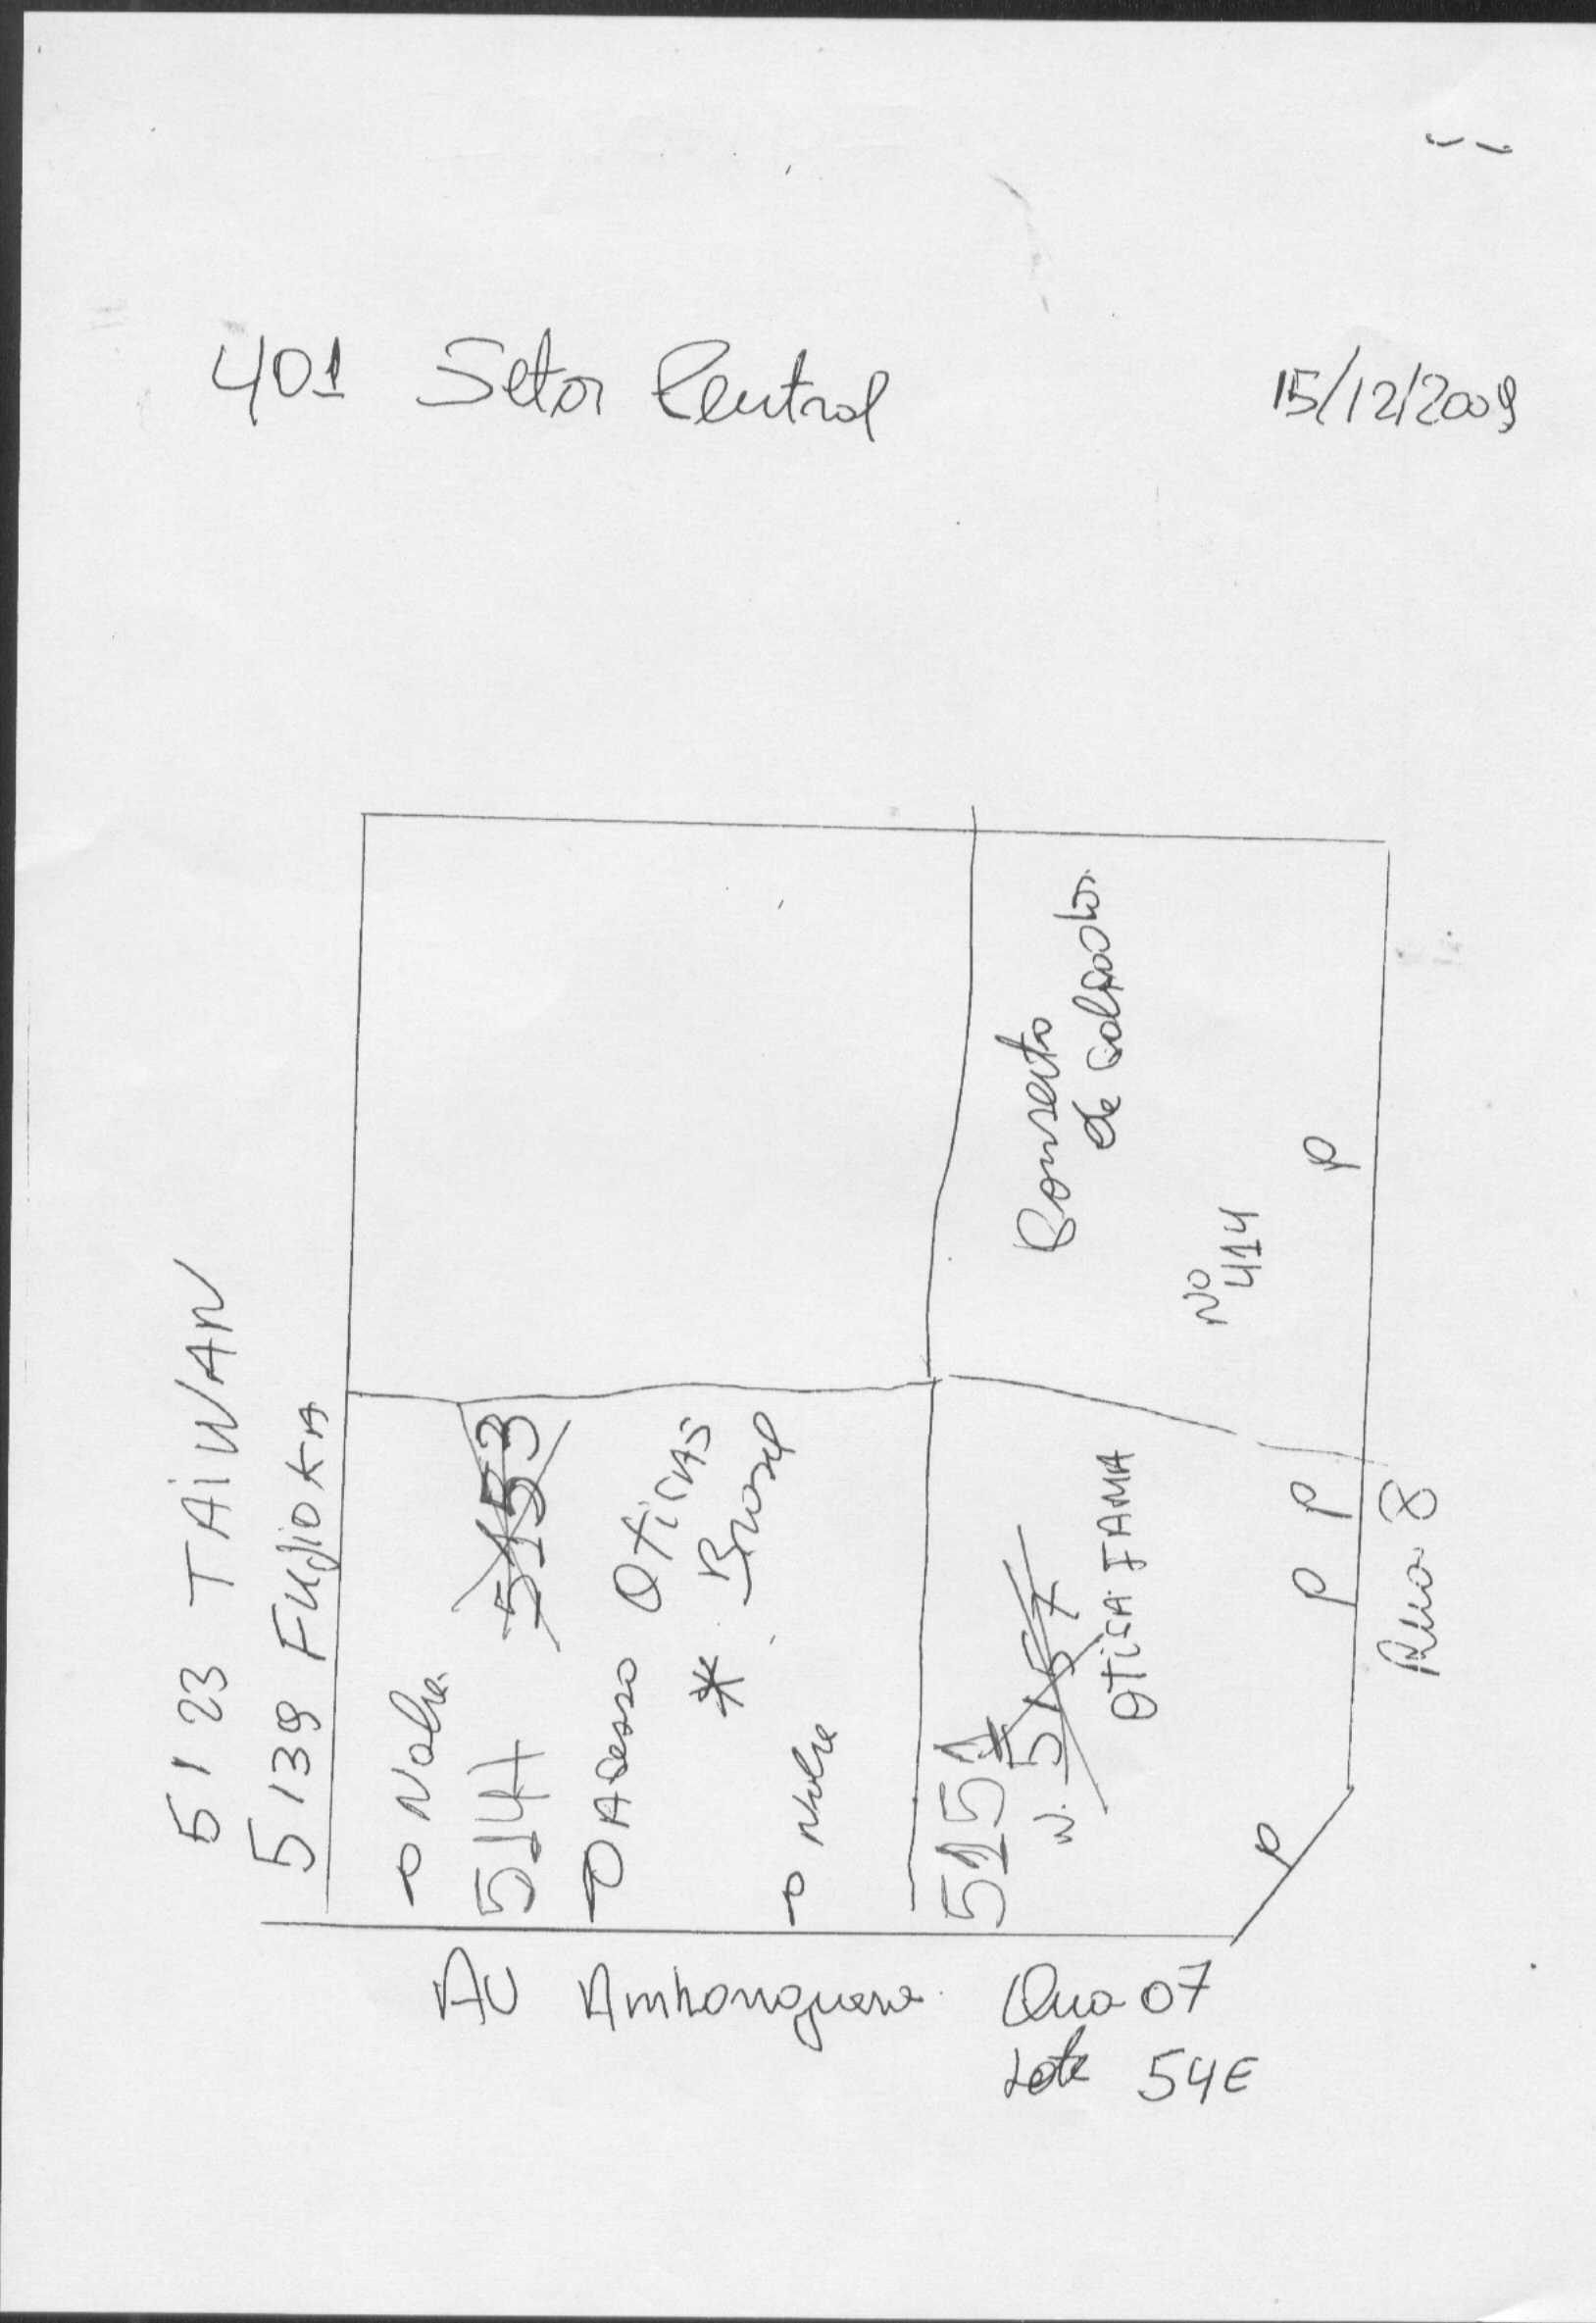 401 Setor Central
15/12/2009
5123 TAIWAN
5139 FUJIOKA
Nobre
5141
5153
Acesso Oticas
* Brasil
Nobre
5151
N. 5157
OTICA FAMA
Conserto
de calçados
Nº
414
P
P P
P
Rua 8
Av Anhanguera Qua 07
Lote 54E